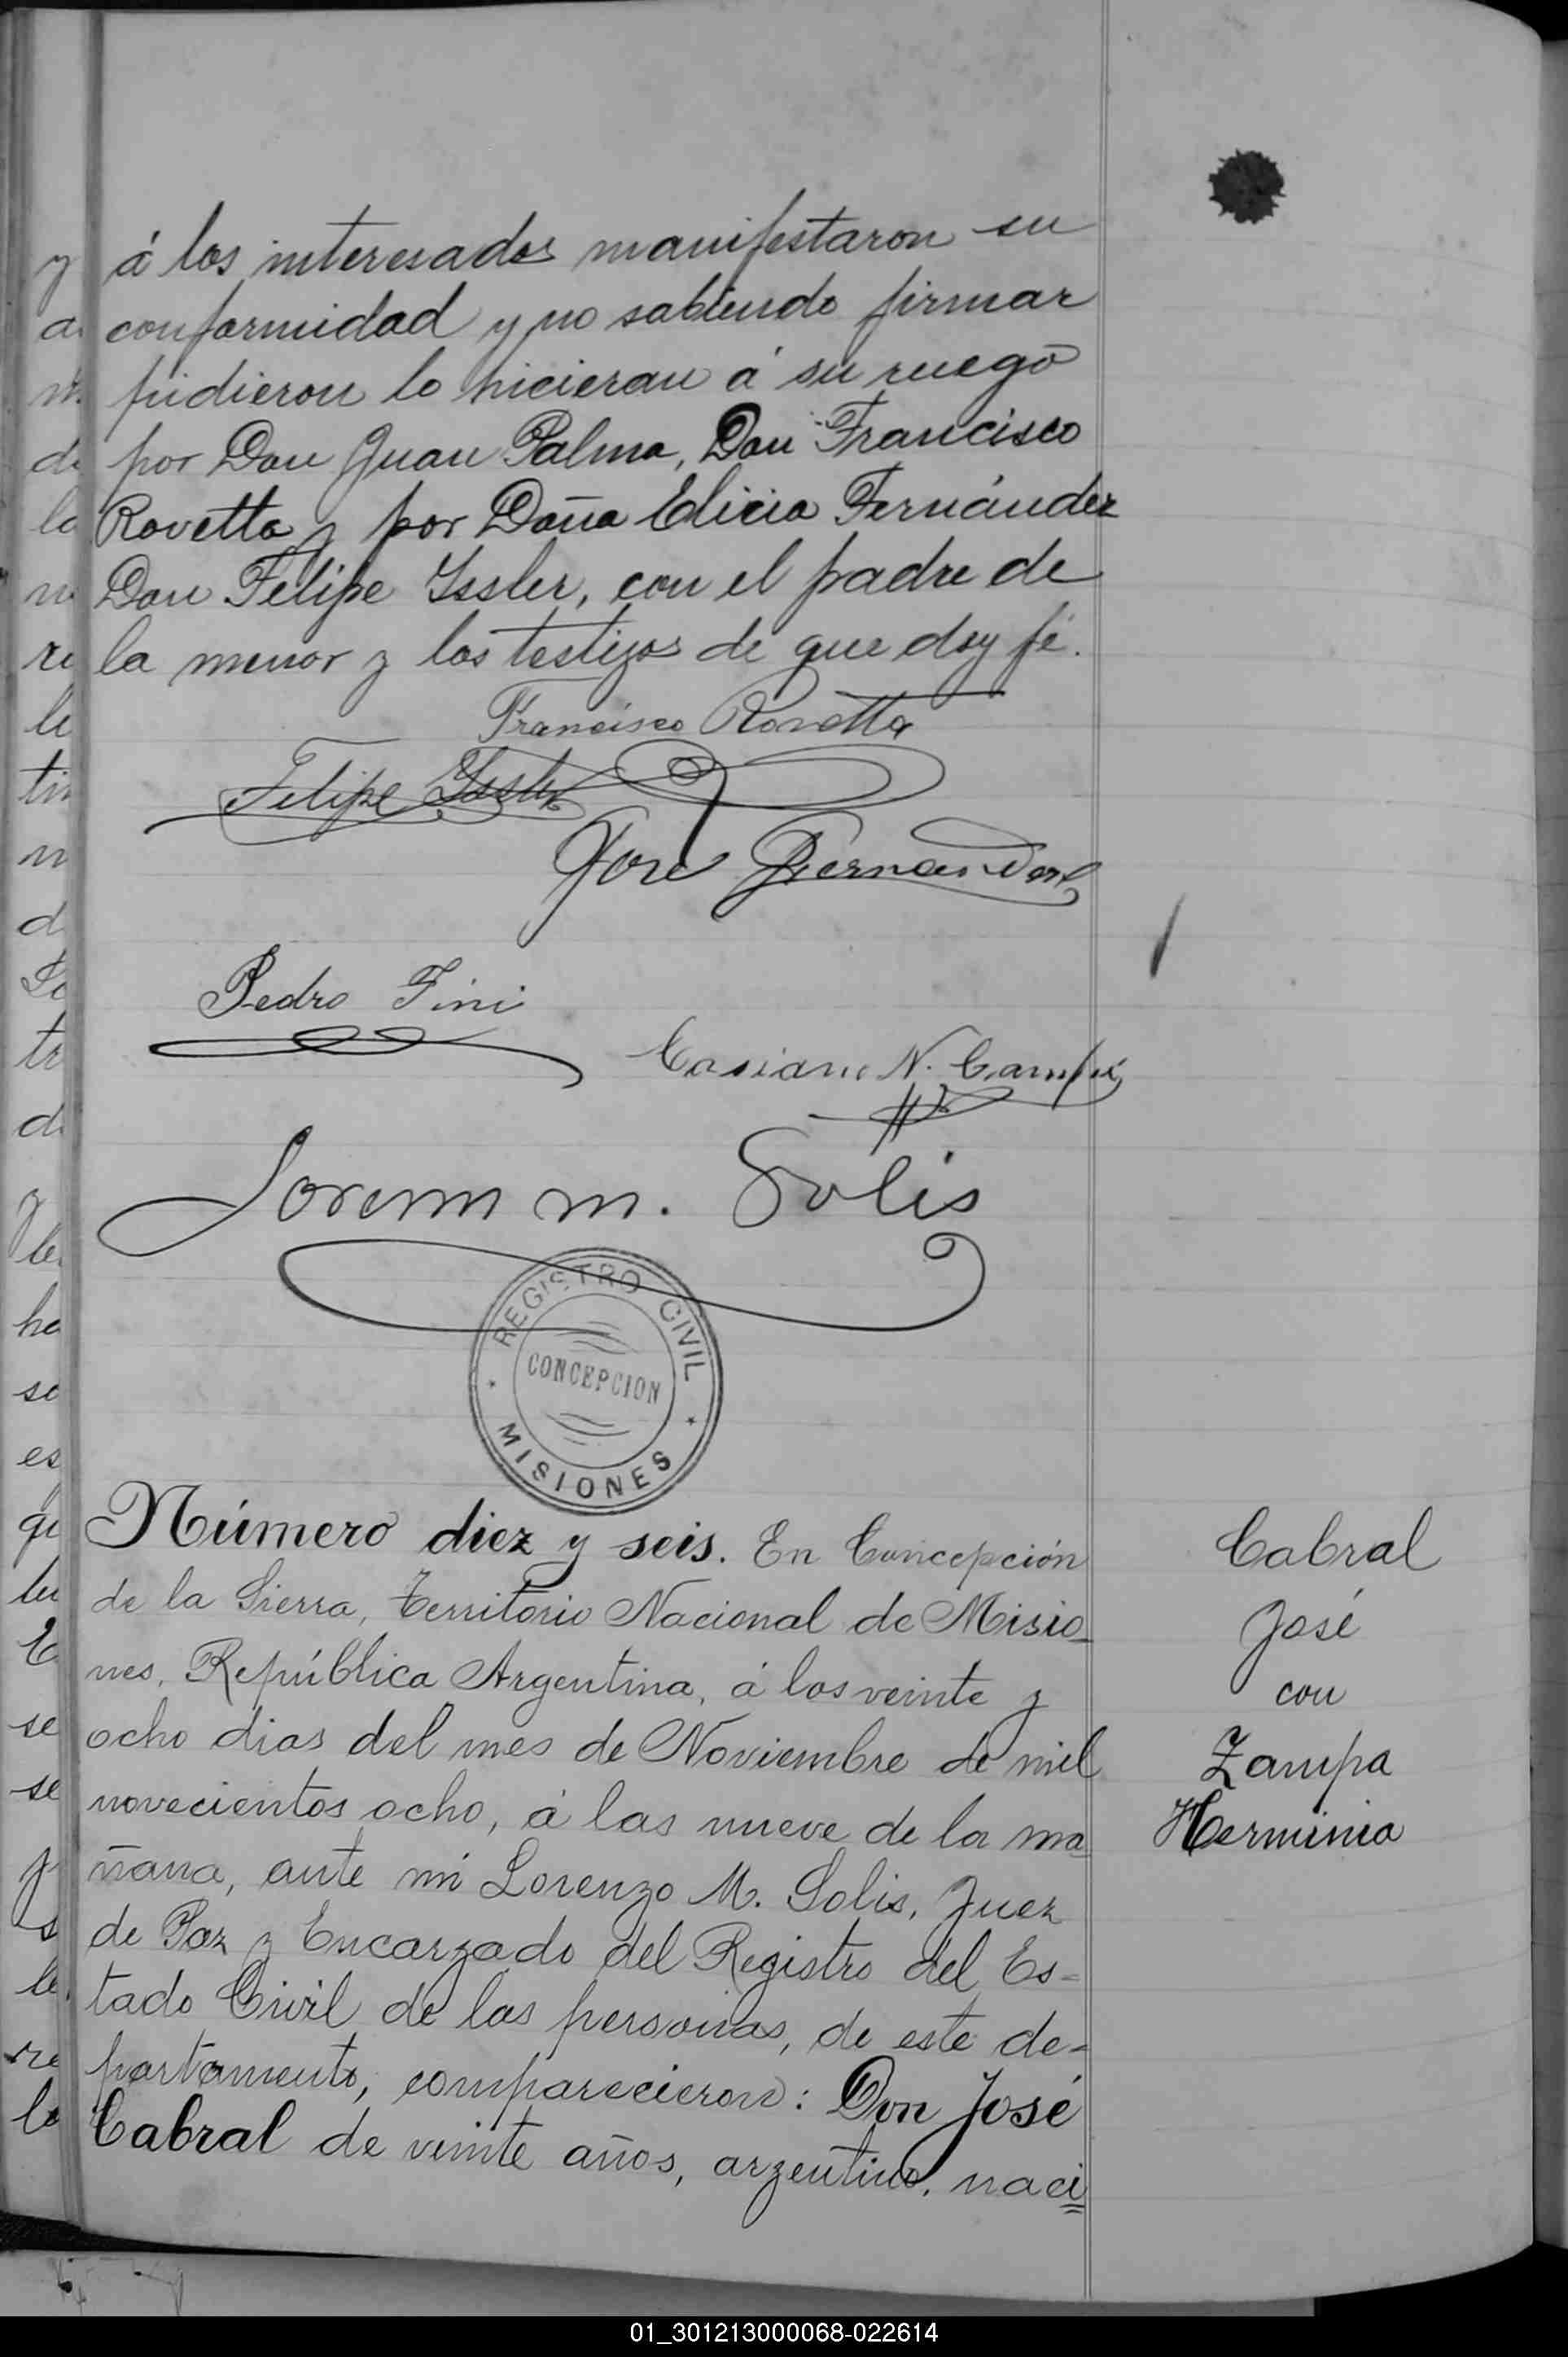 á los interesados manifestaron su
conformidad y no sabiendo firmar
pidieron lo hicieran á su ruego
por Don Juan Palma, Don Francisco
Rovetta y por Doña Elicia Fernández
Don Felipe Issler, con el padre de
la menor y los testigos de que doy fé.
Francisco Rovetta
Felipe Issler
José Fernandez
Pedro Fini
Casiano N. Campos
Lorenzo M. Solis
REGISTRO CIVIL
CONCEPCION
MISIONES
Número diez y seis. En Concepción
de la Sierra, Territorio Nacional de Misio
nes, República Argentina, á los veinte y
ocho dias del mes de Noviembre de mil
novecientos ocho, á las nueve de la ma
ñana, ante mi Lorenzo M. Solis, Juez
de Paz y Encargado del Registro del Es-
tado Civil de las personas, de este de-
partamento, comparecieron: Don José
Cabral de veinte años, argentino, naci
Cabral
José
con
Zampa
Herminia
01_301213000068-022614